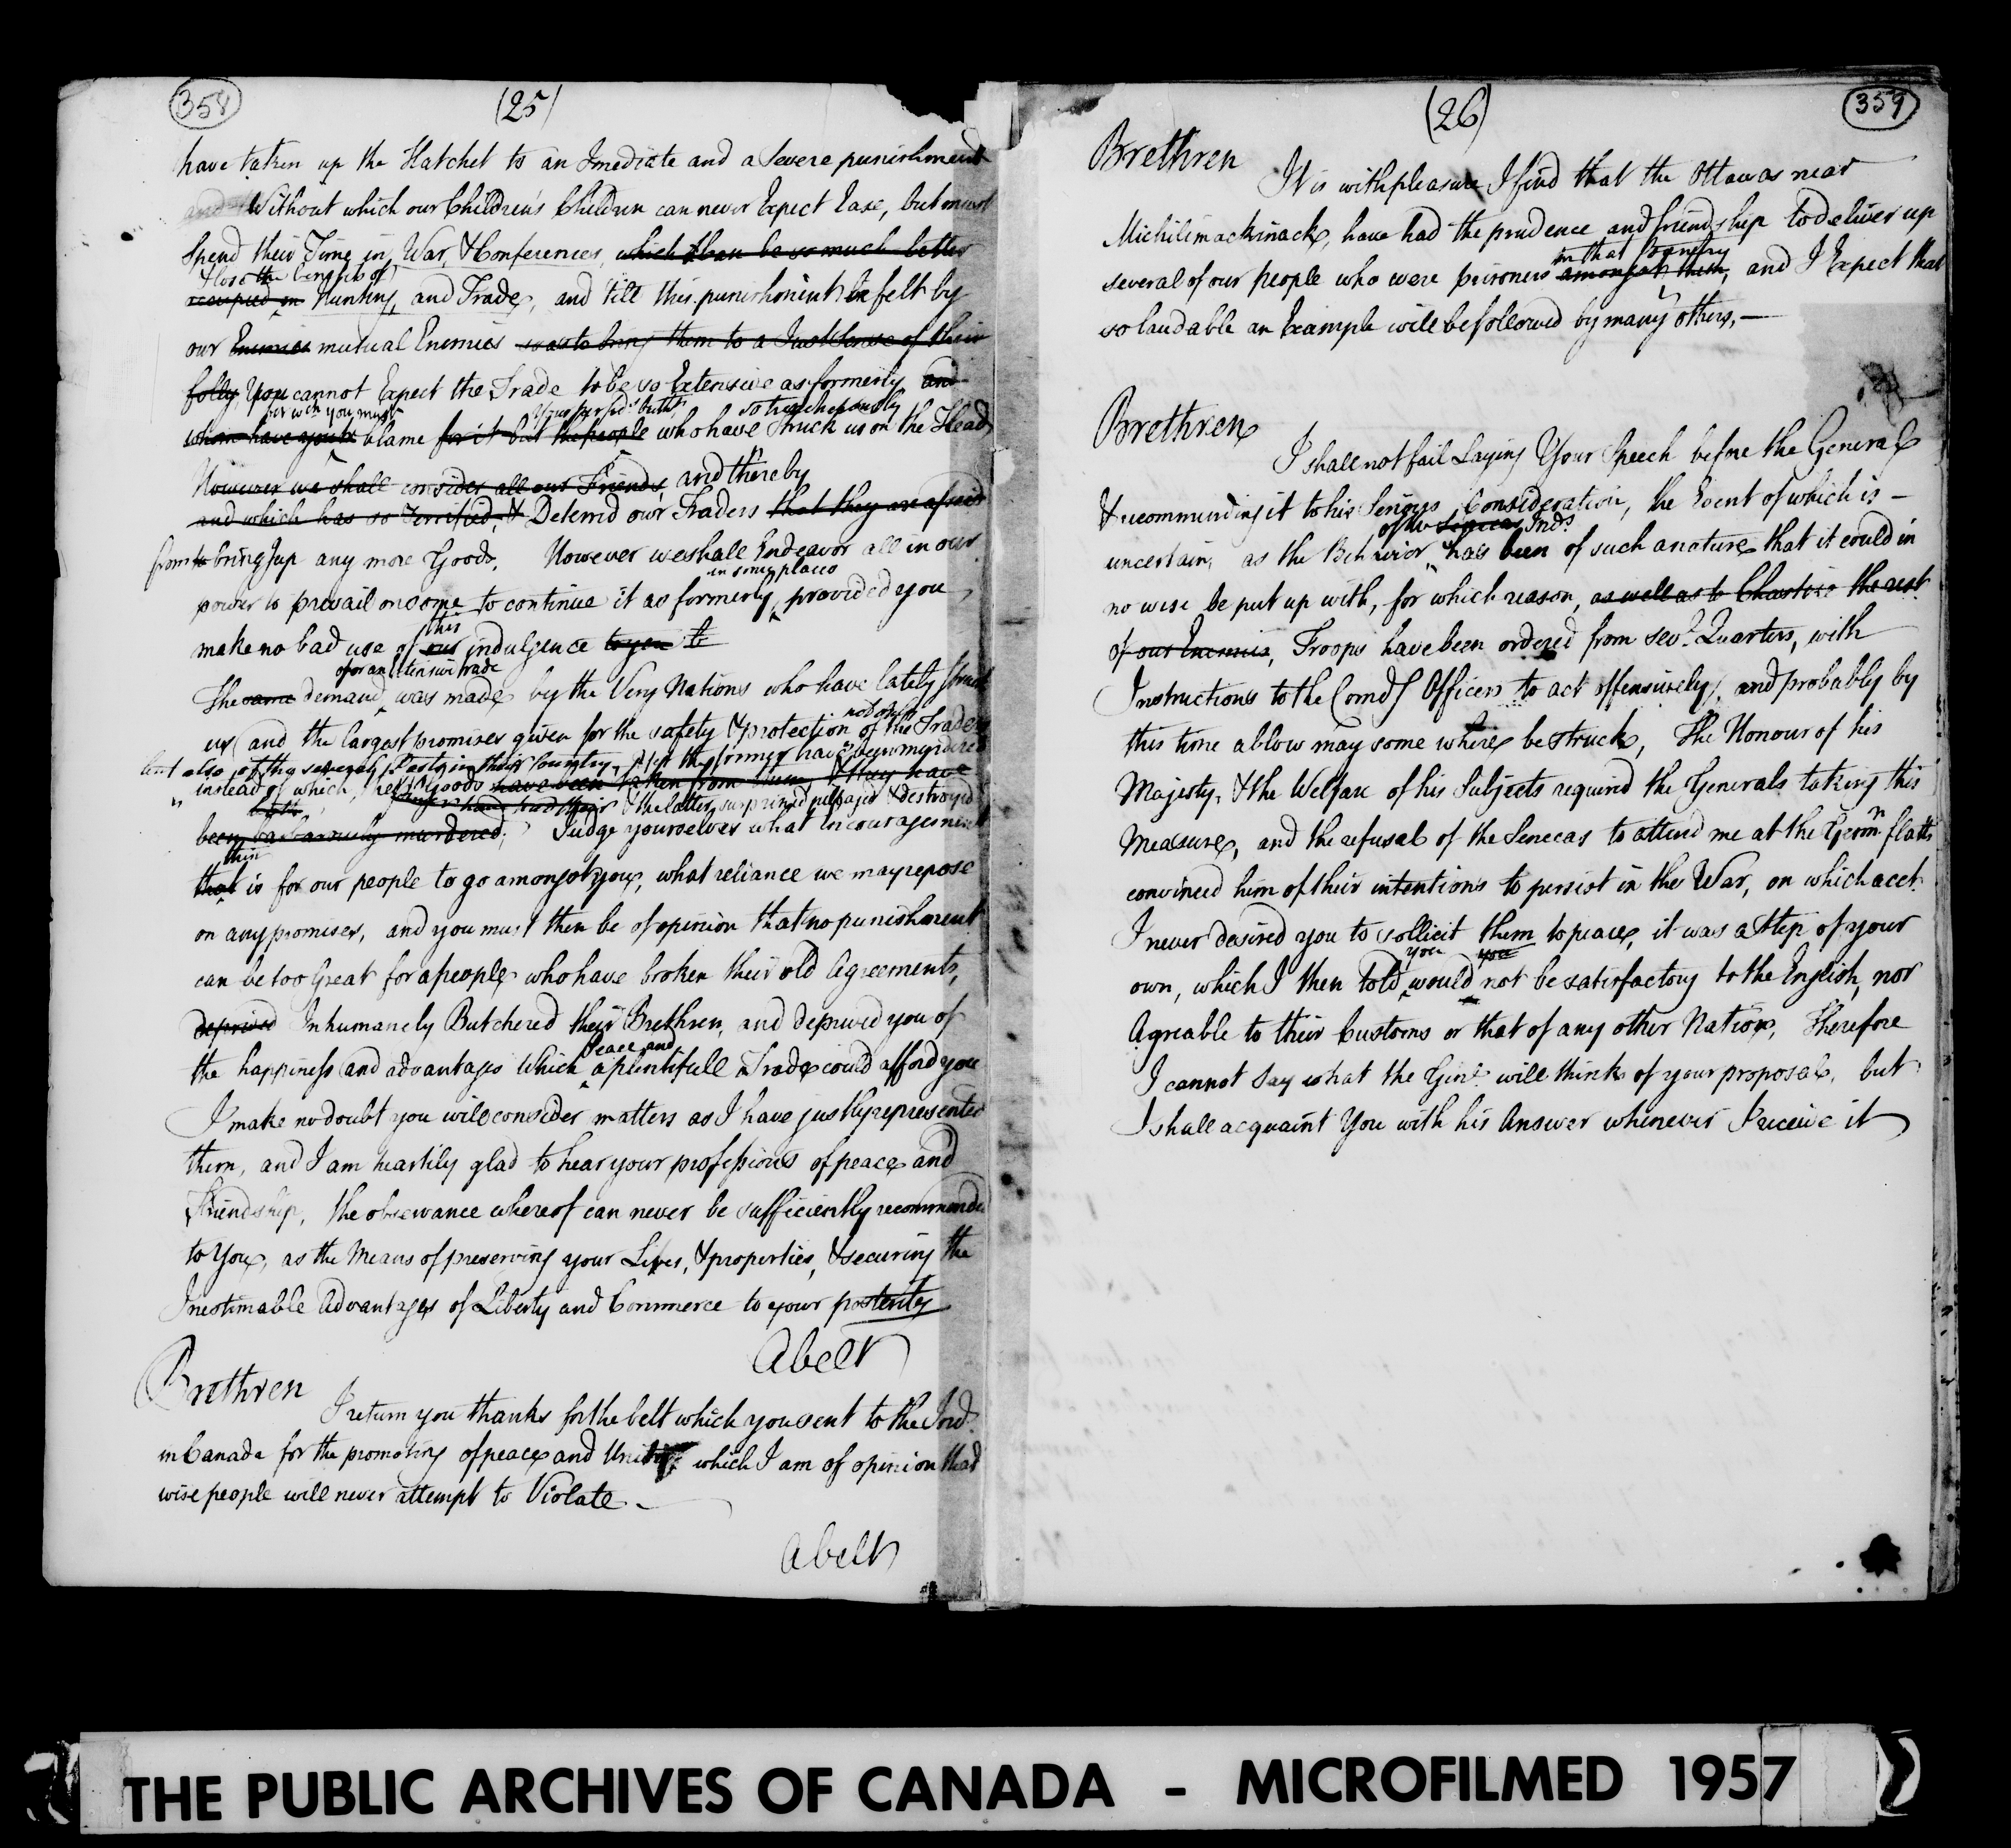 358
(25)
have taken up the Hatchet to an Imediate and a Severe punishment
and Without which our Children's Children can never Expect Ease, but must
Spend their Time in War, & Conferences, which than be so much better
& lose the benefits of
occupied in Hunting, and Trade, and till this punishment be felt by
our Enemies mutual Enemies so as to bring them to a Just Sense of their
folly, You cannot Expect the Trade to be so Extensive as formerly, and
for wch you must your perfids so treacherously
whom have you to blame for it but the people who have Struck us on the Head
However we shall consider all our Friends, and thereby
and which has so terrified, & Deterred our Traders that they are afraid
from to bring up any more Goods, However we shall Endeavor all in our
in some places
power to prevail on some to continue it as formerly, provided you
this
make no bad use of our indulgence to you to
of or an Extensive trade
The same demand, was made by the Very Nations who have lately struck
not only
us, and the largest promises given for the safety & protection of the Traders
but also of the several Posts in their Country, yet the former have been murdered
instead of which, their Goods have been taken from them, & they have
& the latter surprized pillaged & destroyed
been barbarously murdered; Judge yourselves what Encouragement
this
that is for our people to go amongst you, what reliance we may repose
on any promises, and you must then be of opinion that no punishment
can be too Great for a people who have broken their old Agreements,
deprived Inhumanely Butchered their Brethren, and deprived you of
Peace and
the happiness and advantages which a plentifull Trade could afford you
I make no doubt you will consider matters as I have justly represented
them, and I am heartily glad to hear your professions of peace and
Friendship, the observance whereof can never be sufficiently recommended
to You, as the Means of preserving your Lives, & properties, & securing the
Inestimable Advantages of Liberty and Commerce to your posterity
A belt
Brethren
I return you thanks for the belt which you sent to the Inds.
in Canada for the promoting of peace and Unity which I am of opinion that
wise people will never attempt to Violate. —
A belt
(26)
359
Brethren
It is with pleasure I find that the Ottawas near
Michilimackinack, have had the prudence and friendship to deliver up
in that Country
several of our people who were prisoners amongst them, and I Expect that
so laudable an Example will be followed by many others, —
Brethren
I shall not fail Laying Your Speech before the General
& recommending it to his Serious Consideration, the Event of which is —
of the Senecas Inds
uncertain, as the Behavior has been of such a nature that it could in
no wise be put up with, for which reason, as well as to Chastise the rest
of our Enemies, Troops have been ordered from sevl. Quarters, with
Instructions to the Comdg Officers to act offensively, and probably by
this time a blow may some where be struck, The Honour of his
Majesty, & the Welfare of his Subjects required the Generals taking this
Measure, and the refusal of the Senecas to attend me at the Germn. flatts
convinced him of their intentions to persist in the War, on which acct.
I never desired you to sollicit them to peace, it was a Step of your
you you
own, which I then told would not be satisfactory to the English, nor
Agreable to their Customs or that of any other Nation, Therefore
I cannot say what the Genl. will think of your proposal, but
I shall acquaint You with his Answer whenever I receive it
THE PUBLIC ARCHIVES OF CANADA - MICROFILMED 1957